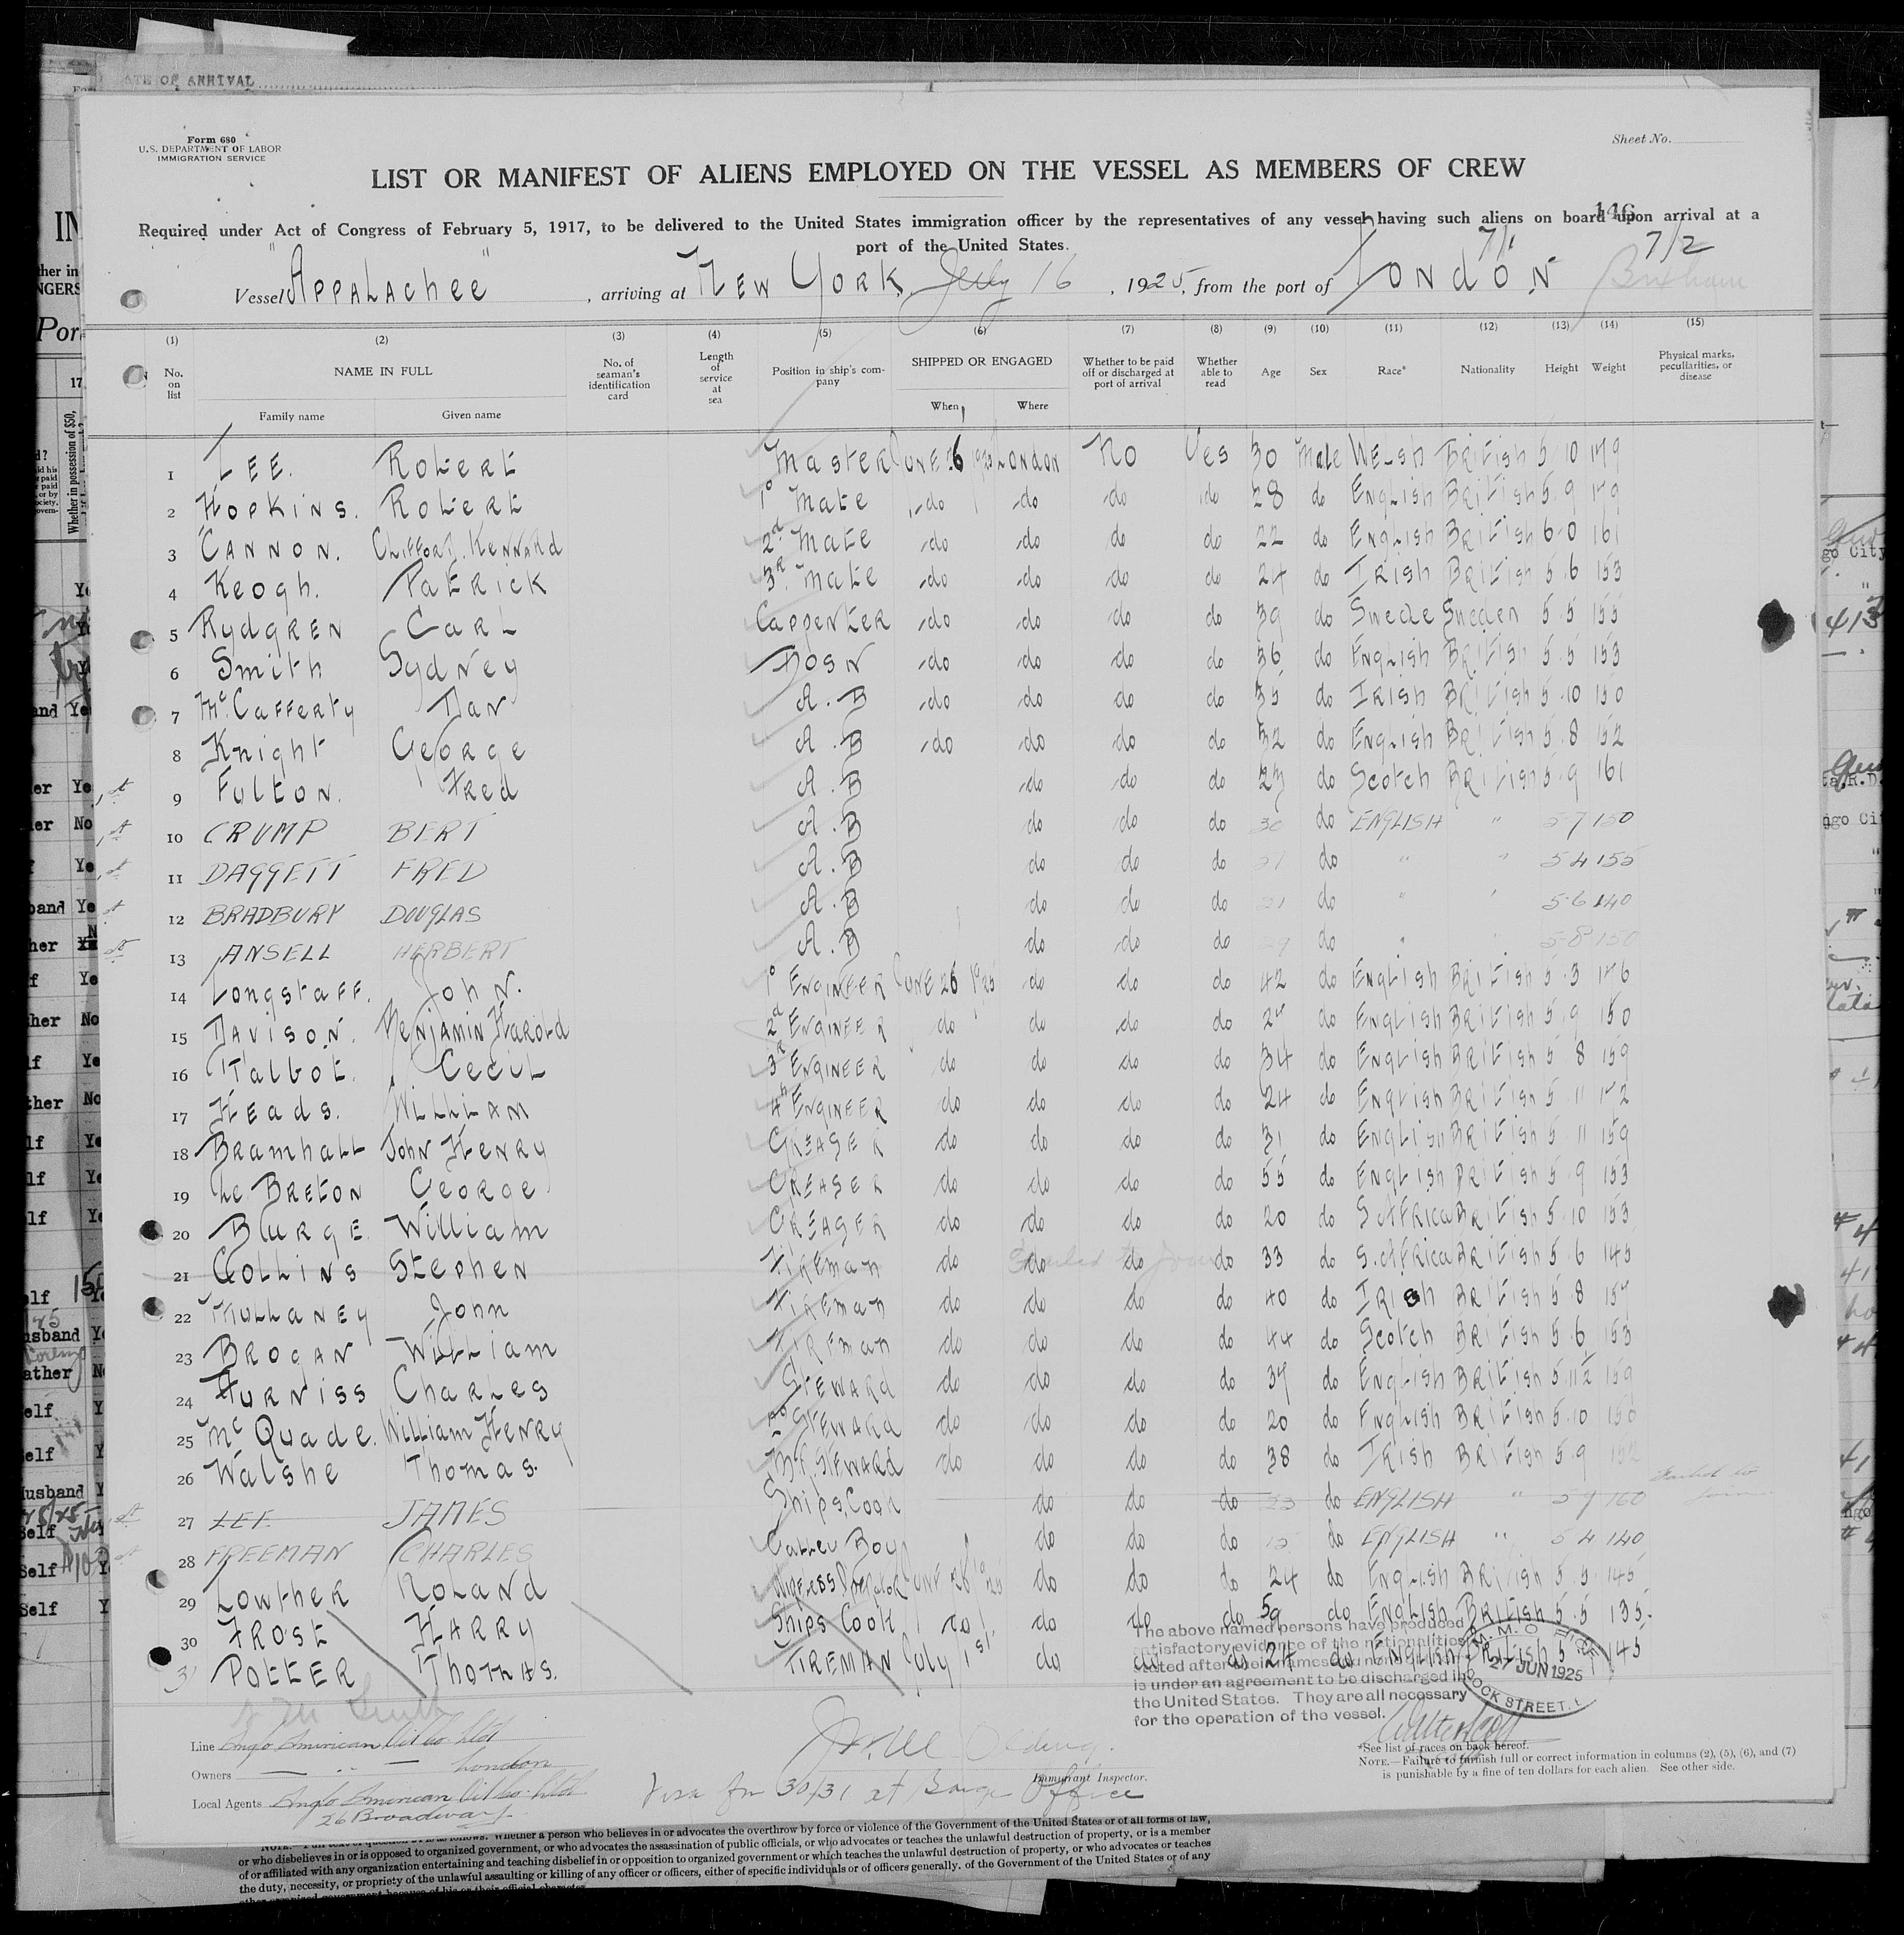 ATE OF ARRIVAL
Form 680
U.S. DEPARTMENT OF LABOR
IMMIGRATION SERVICE
Sheet No.
LIST OR MANIFEST OF ALIENS EMPLOYED ON THE VESSEL AS MEMBERS OF CREW
146
Required under Act of Congress of February 5, 1917, to be delivered to the United States immigration officer by the representatives of any vessel having such aliens on board upon arrival at a
port of the United States.
7/1 7/2
Vessel "Appalachee", arriving at New York, July 16, 1925, from the port of London Brixham
(1) (2) (3) (4) (5) (6) (7) (8) (9) (10) (11) (12) (13) (14) (15)
No. on list NAME IN FULL No. of seaman's identification card Length of service at sea Position in ship's company SHIPPED OR ENGAGED Whether to be paid off or discharged at port of arrival Whether able to read Age Sex Race* Nationality Height Weight Physical marks, peculiarities, or disease
Family name Given name When Where
1 Lee. Robert Master June 26 1925 London No Yes 30 Male Welsh British 5 10 179
2 Hopkins. Robert 1º Mate do do do do 28 do English British 5 9 179
3 Cannon. Clifford Kennard 2d Mate do do do do 22 do English British 6 0 161
4 Keogh. Patrick 3R Mate do do do do 24 do Irish British 5 6 153
5 Rydgren Carl Carpenter do do do do 39 do Swede Sweden 5 5 155
6 Smith Sydney Bosn do do do do 36 do English British 5 5 153
7 McCafferty Dan A.B do do do do 35 do Irish British 5 10 150
8 Knight George A.B do do do do 32 do English British 5 8 152
9 Fulton. Fred A.B do do do 27 do Scotch British 5 9 161
10 CRUMP BERT A.B do do do 30 do ENGLISH " 5 7 150
11 DAGGETT FRED A.B do do do 21 do " " 5 4 155
12 BRADBURY DOUGLAS A.B do do do 21 do " " 5 6 140
13 ANSELL HERBERT A.B do do do 29 do " " 5 8 150
14 Longstaff. John. 1º Engineer June 26 1925 do do do 42 do English British 5 3 176
15 Davison. Benjamin Harold 2d Engineer do do do do 27 do English British 5 9 150
16 Talbot. Cecil 3R Engineer do do do do 34 do English British 5 8 159
17 Heads. William 4th Engineer do do do do 24 do English British 5 11 172
18 Bramhall John Henry Greaser do do do do 31 do English British 5 11 159
19 Le Breton George Greaser do do do do 55 do English British 5 9 153
20 Burge William Greaser do do do do 20 do S. Africa British 5 10 153
21 Collins Stephen Fireman do do do do 33 do S. Africa British 5 6 145
22 Mullaney John Fireman do do do do 40 do Irish British 5 8 157
23 Brogan William Fireman do do do do 44 do Scotch British 5 6 153
24 Furniss Charles Steward do do do do 37 do English British 5 11½ 159
25 McQuade. William Henry Steward do do do do 20 do English British 5 10 150
26 Walshe Thomas. Steward do do do do 38 do Irish British 5 9 152
27 LEE JAMES Ships Cook do do do 23 do ENGLISH " 5 7 160 Failed to join
28 FREEMAN CHARLES Galley Boy do do do do ENGLISH " 5 4 140
29 Lowther Roland Wireless Operator June 26 1925 do do do 24 do English British 5 5 145
30 Frost Harry Ships Cook do do do do 59 do English British 5 5 135
31 Potter Thomas. Fireman July 1st do do do 24 do English British 5 145
The above named persons have produced
satisfactory evidence of the nationalities
stated after their names and none
is under an agreement to be discharged in
the United States. They are all necessary
for the operation of the vessel.
M.M.O
27 JUN 1925
DOCK STREET
Line Anglo American Oil Co. Ltd
Owners — " — London
Local Agents Anglo American Oil Co. Ltd
26 Broadway
Visa for 30/31 at Barge Office
Immigrant Inspector.
*See list of races on back hereof.
NOTE.—Failure to furnish full or correct information in columns (2), (5), (6), and (7)
is punishable by a fine of ten dollars for each alien. See other side.
or who disbelieves in or is opposed to organized government, or who advocates the assassination of public officials, or who advocates or teaches the unlawful destruction of property, or is a member
of or affiliated with any organization entertaining and teaching disbelief in or opposition to organized government or which teaches the unlawful destruction of property, or who advocates or teaches
the duty, necessity, or propriety of the unlawful assaulting or killing of any officer or officers, either of specific individuals or of officers generally. of the Government of the United States or of any